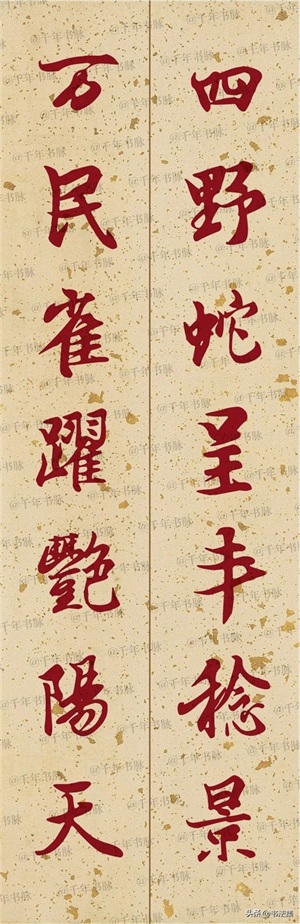 四野蛇呈丰稔景
万民雀躍艷陽天
@千年书脉
头条@书法班